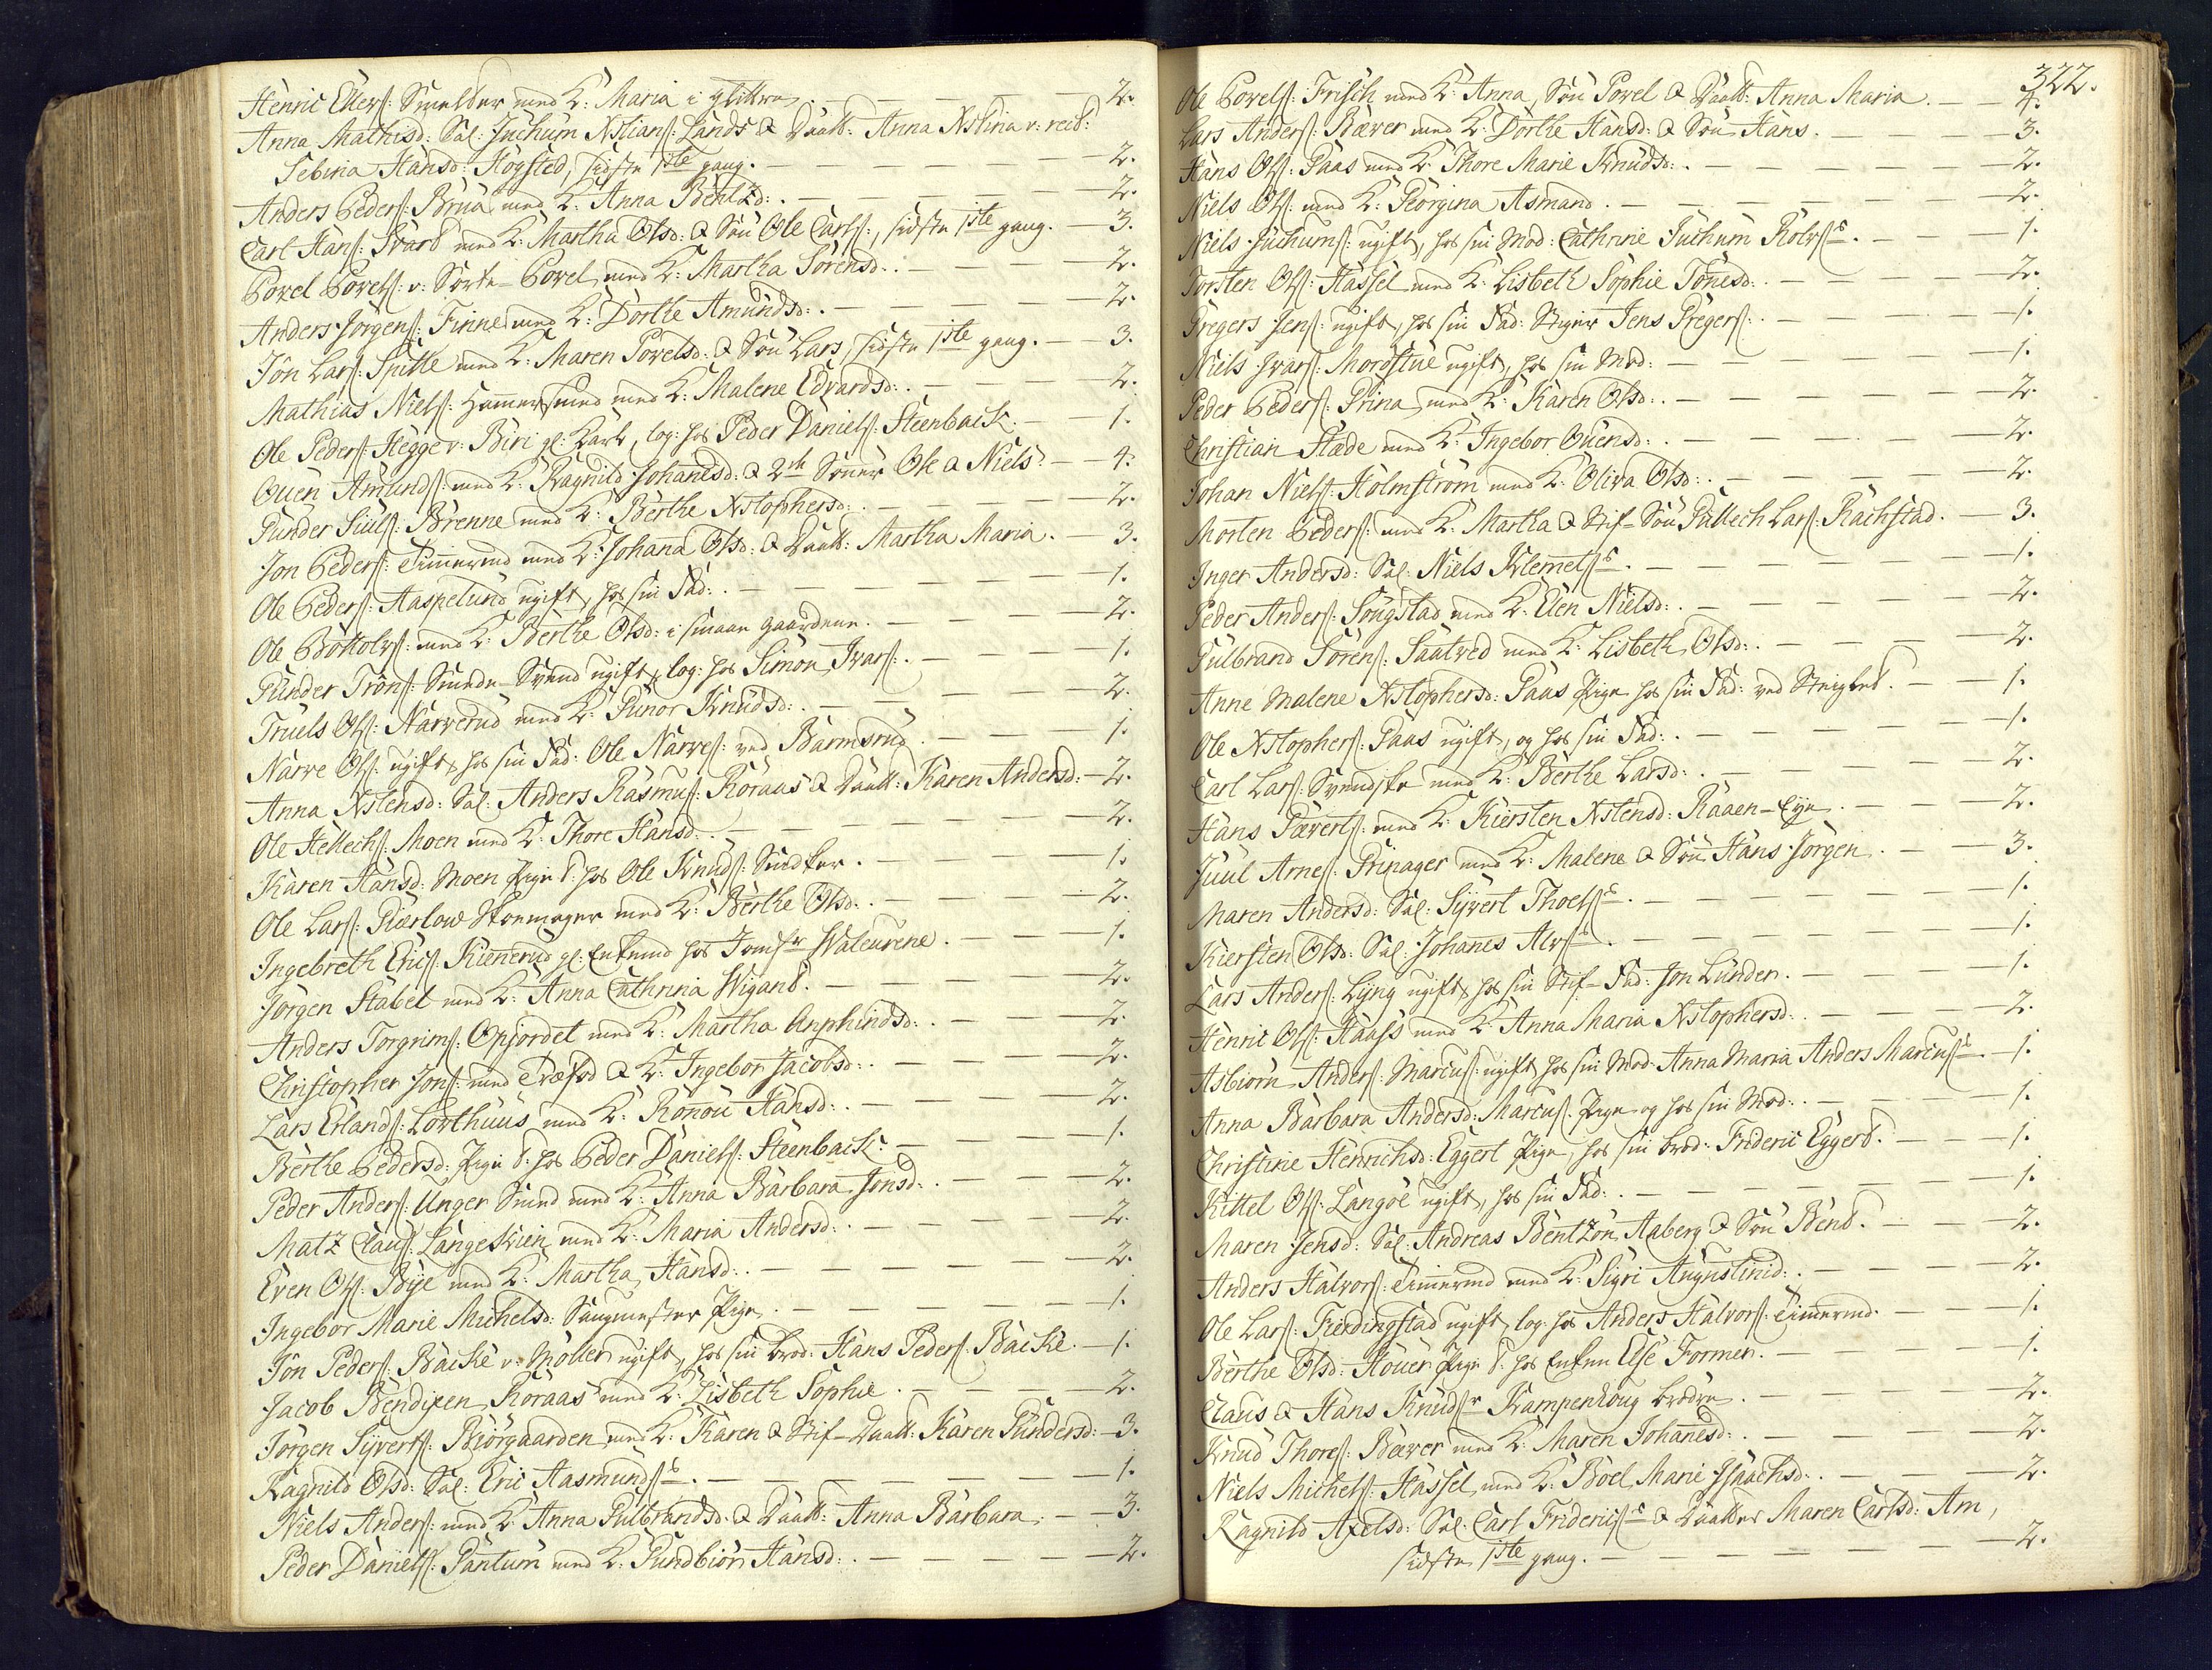 Henric Ellers: Smelder med K: Maria i Glittre — 2.
Anna Mathisd: Sal: Juchum Xstians: Lands & Daatt: Anna Xstina v: reid:
Sebina Hansd: Høgsted, sidste 1ste gang. — 2.
Anders Peders: Brua med K: Anna Bentzd: — 2.
Carl Hans: Svard med K: Martha Olsd: & Søn Ole Carls:, sidste 1ste gang. — 3.
Povel Povels: v: Sorte-Povel med K: Martha Sørensd: — 2.
Anders Jørgens: Finne med K: Dorthe Amundsd: — 2.
Jon Lars: Spitle med K: Maren Povelsd: & Søn Lars, sidste 1ste gang. — 3.
Mathias Niels: Hammersmed med K: Malene Edvardsd: — 2.
Ole Peders: Hegge v: Biri gl: Karl, log: hos Peder Daniels: Steenback. — 1.
Ouen Amunds: med K: Ragnild Johanesd: & 2de Sønner Ole & Niels. — 4.
Gunder Siuls: Brenne med K: Berthe Xstophersd: — 2.
Jon Peders: Timmermd med K: Johana Olsd: & Daatt: Martha Maria. — 3.
Ole Peders: Aaspelund ugift, hos sin Fad: — 1.
Ole Bottolvs: med K: Berthe Olsd: i smaae gaardene. — 2.
Gunder Trons: Smede-Svend ugift, log: hos Simon Ivars: — 1.
Truels Ols: Narverud med K: Gunor Knudsd: — 2.
Narve Ols: ugift, hos sin Fad: Ole Narves: ved Barmsrud — 1.
Anna Xstensd: Sal: Anders Rasmus: Røraas & Daatt: Karen Andersd: — 2.
Ole Hellechs: Moen med K: Thore Hansd: — 2.
Karen Hansd: Moen Pige t: hos Ole Knuds: Snedker. — 1.
Ole Lars: Giærlow Skoemager med K: Berthe Olsd: — 2.
Ingebreth Erics: Kiennerud gl: Enkemd hos Jomfr Waleurene. — 1.
Jørgen Stabel med K: Anna Cathrina Wigant. — 2.
Anders Torgrims: Opjordet med K: Martha Anphindsd: — 2.
Christopher Jons: med Træfod & K: Ingebor Jacobsd: — 2.
Lars Erlands: Lorthuus med K: Rønnou Hansd: — 2.
Berthe Pedersd: Pige t: hos Peder Daniels: Steenback: — 1.
Peder Anders: Unger Smed med K: Anna Barbara Jonsd: — 2.
Matz Claus: Langeskien med K: Maria Andersd: — 2.
Even Ols: Bye med K: Martha Hansd: — 2.
Ingebor Marie Michelsd: Saugmester Pige — 1.
Jon Peders: Backe v: Møller ugift, hos sin Brod: Hans Peders: Backe. — 1.
Jacob Bendixen Røraas med K: Lisbeth Sophie. — 2.
Jørgen Syverts: Biørgaarden med K: Karen & Stif-Daatt: Karen Gundersd: — 3.
Ragnild Olsd: Sal: Eric Aasmunds: — 1.
Niels Anders: med K: Anna Gulbrandsd: & Daatt: Anna Barbara. — 3.
Peder Daniels: Pantum med K: Gundbiør Hansd: — 2.
322.
Ole Povels: Frisch med K: Anna, Søn Povel & Daatt: Anna Maria. — 4.
Lars Anders: Bæver med K: Dorthe Hansd: & Søn Hans. — 3.
Hans Ols: Gaas med K: Thore Marie Knudsd: — 2.
Niels Ols: med K: Georgina Asmand. — 2.
Niels Juchums: ugift, hos sin Mod: Cathrine Juchum Rolvs: — 1.
Torsten Ols: Hassel med K: Lisbeth Sophie Tonesd: — 2.
Gregers Jens: ugift, hos sin Fad: Stiger Jens Gregers: — 1.
Niels Ivars: Mordstue ugift, hos sin Mod: — 1.
Peder Peders: Prina med K: Karen Olsd: — 2.
Christian Stæde med K: Ingebor Ouensd: — 2.
Johan Niels: Holmstrøm med K: Oliva Olsd: — 2.
Morten Peders: med K: Martha & Stif-Søn Gullech Lars: Rachstad. — 3.
Inger Andersd: Sal: Niels Klemets: — 1.
Peder Anders: Songstad med K: Elen Nielsd: — 2.
Gulbrand Sørens: Saatved med K: Lisbeth Olsd: — 2.
Anne Malene Xstophersd: Gaas Pige hos sin Fad: ved Strigled. — 1.
Ole Xstophers: Gaas ugift, og hos sin Fad: — 1.
Carl Lars: Svendske med K: Berthe Larsd: — 2.
Hans Gæverts: med K: Kiersten Xstensd: Raaen-Eye — 2.
Juul Arnes: Gripager med K: Malene & Søn Hans Jørgen — 3.
Maren Andersd: Sal: Syvert Thoels: — 1.
Kiersten Olsd: Sal: Johanes Alvs: — 1.
Lars Anders: Lyng ugift, hos sin Stif-Fad: Jon Lunder. — 1.
Henric Ols: Haass med K: Anna Maria Xstophersd: — 2.
Asbiørn Anders: Marcus: ugift, hos sin Mod: Anna Maria Anders Marcus: — 1.
Anna Barbara Andersd: Marcus: Pige og hos sin Mod: — 1.
Christine Henrichsd: Eggert Pige, hos sin Brod: Frideric Eggert. — 1.
Kittel Ols: Langøe ugift, hos sin Fad: — 1.
Maren Jensd: Sal: Andreas Bentzon Aaberg & Søn Bent. — 2.
Anders Halvors: Timmermd med K: Sigri Augustinid: — 2.
Ole Lars: Fierdingstad ugift, log: hos Anders Halvors: Timmermd. — 1.
Berthe Olsd: Houer Pige t: hos Enken Else Formen. — 1.
Claus & Hans Knudsr Kampenhoug Brødre — 2.
Knud Thores: Bæver med K: Maren Johanesd: — 2.
Niels Michels: Hassel med K: Boel Marie Isaachsd: — 2.
Ragnild Axelsd: Sal: Carl Friderics: & Daatter Maren Carlsd: Am,
sidste 1ste gang. — 2.